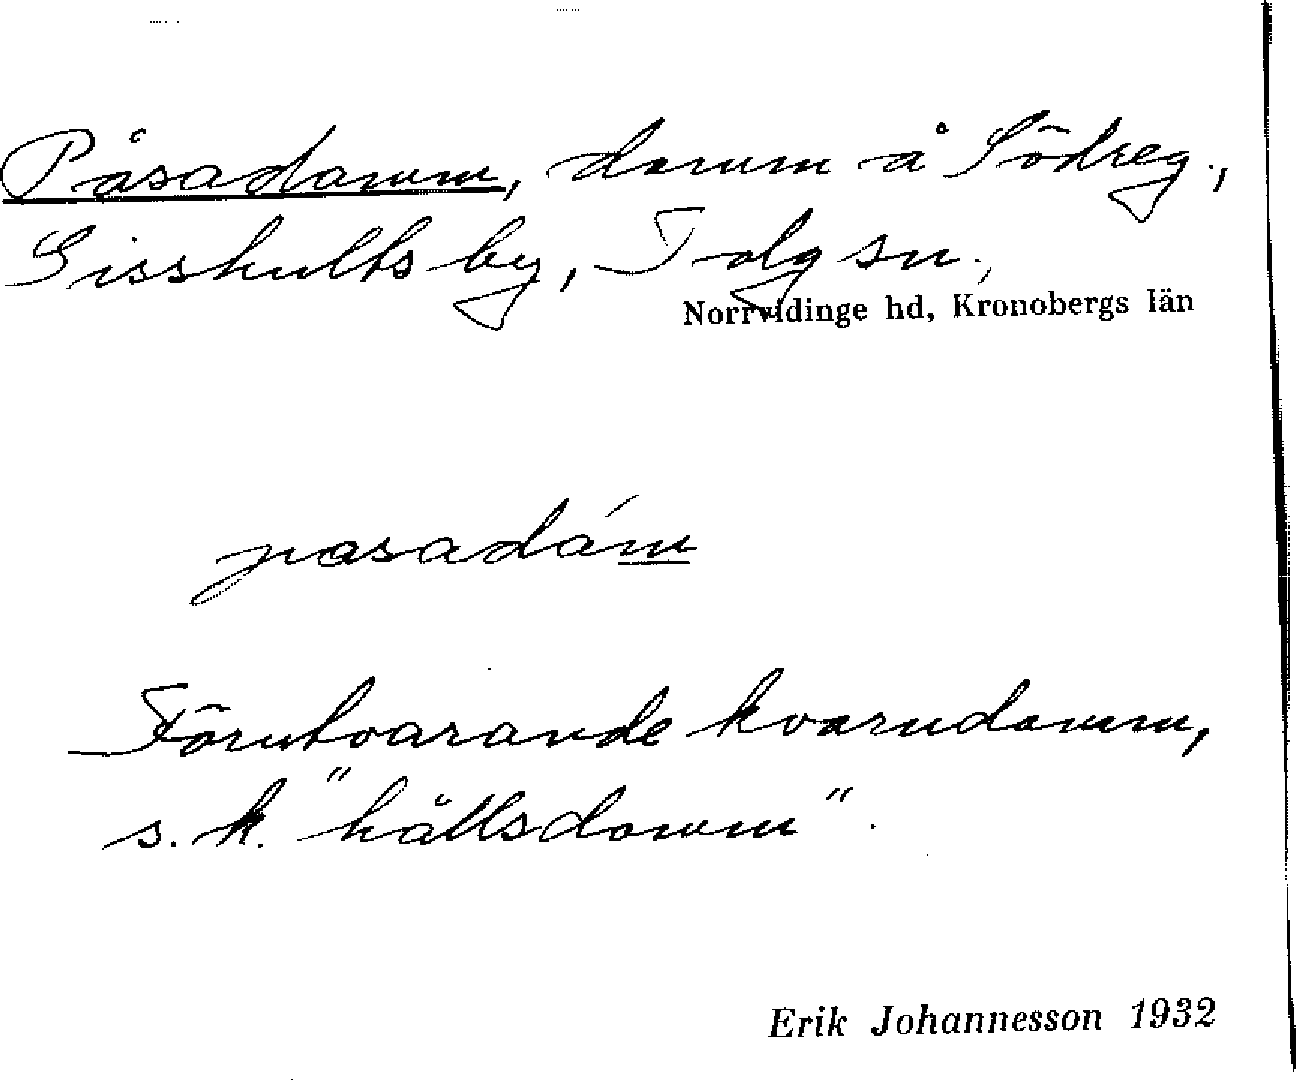 Påsadamm, damm å Södreg.,
Sisshults by, Tolg sn.,
Norrvidinge hd, Kronobergs län
pasadám
Förutvarande kvarndamm,
s.k. "hållsdamm".
Erik Johannesson 1932